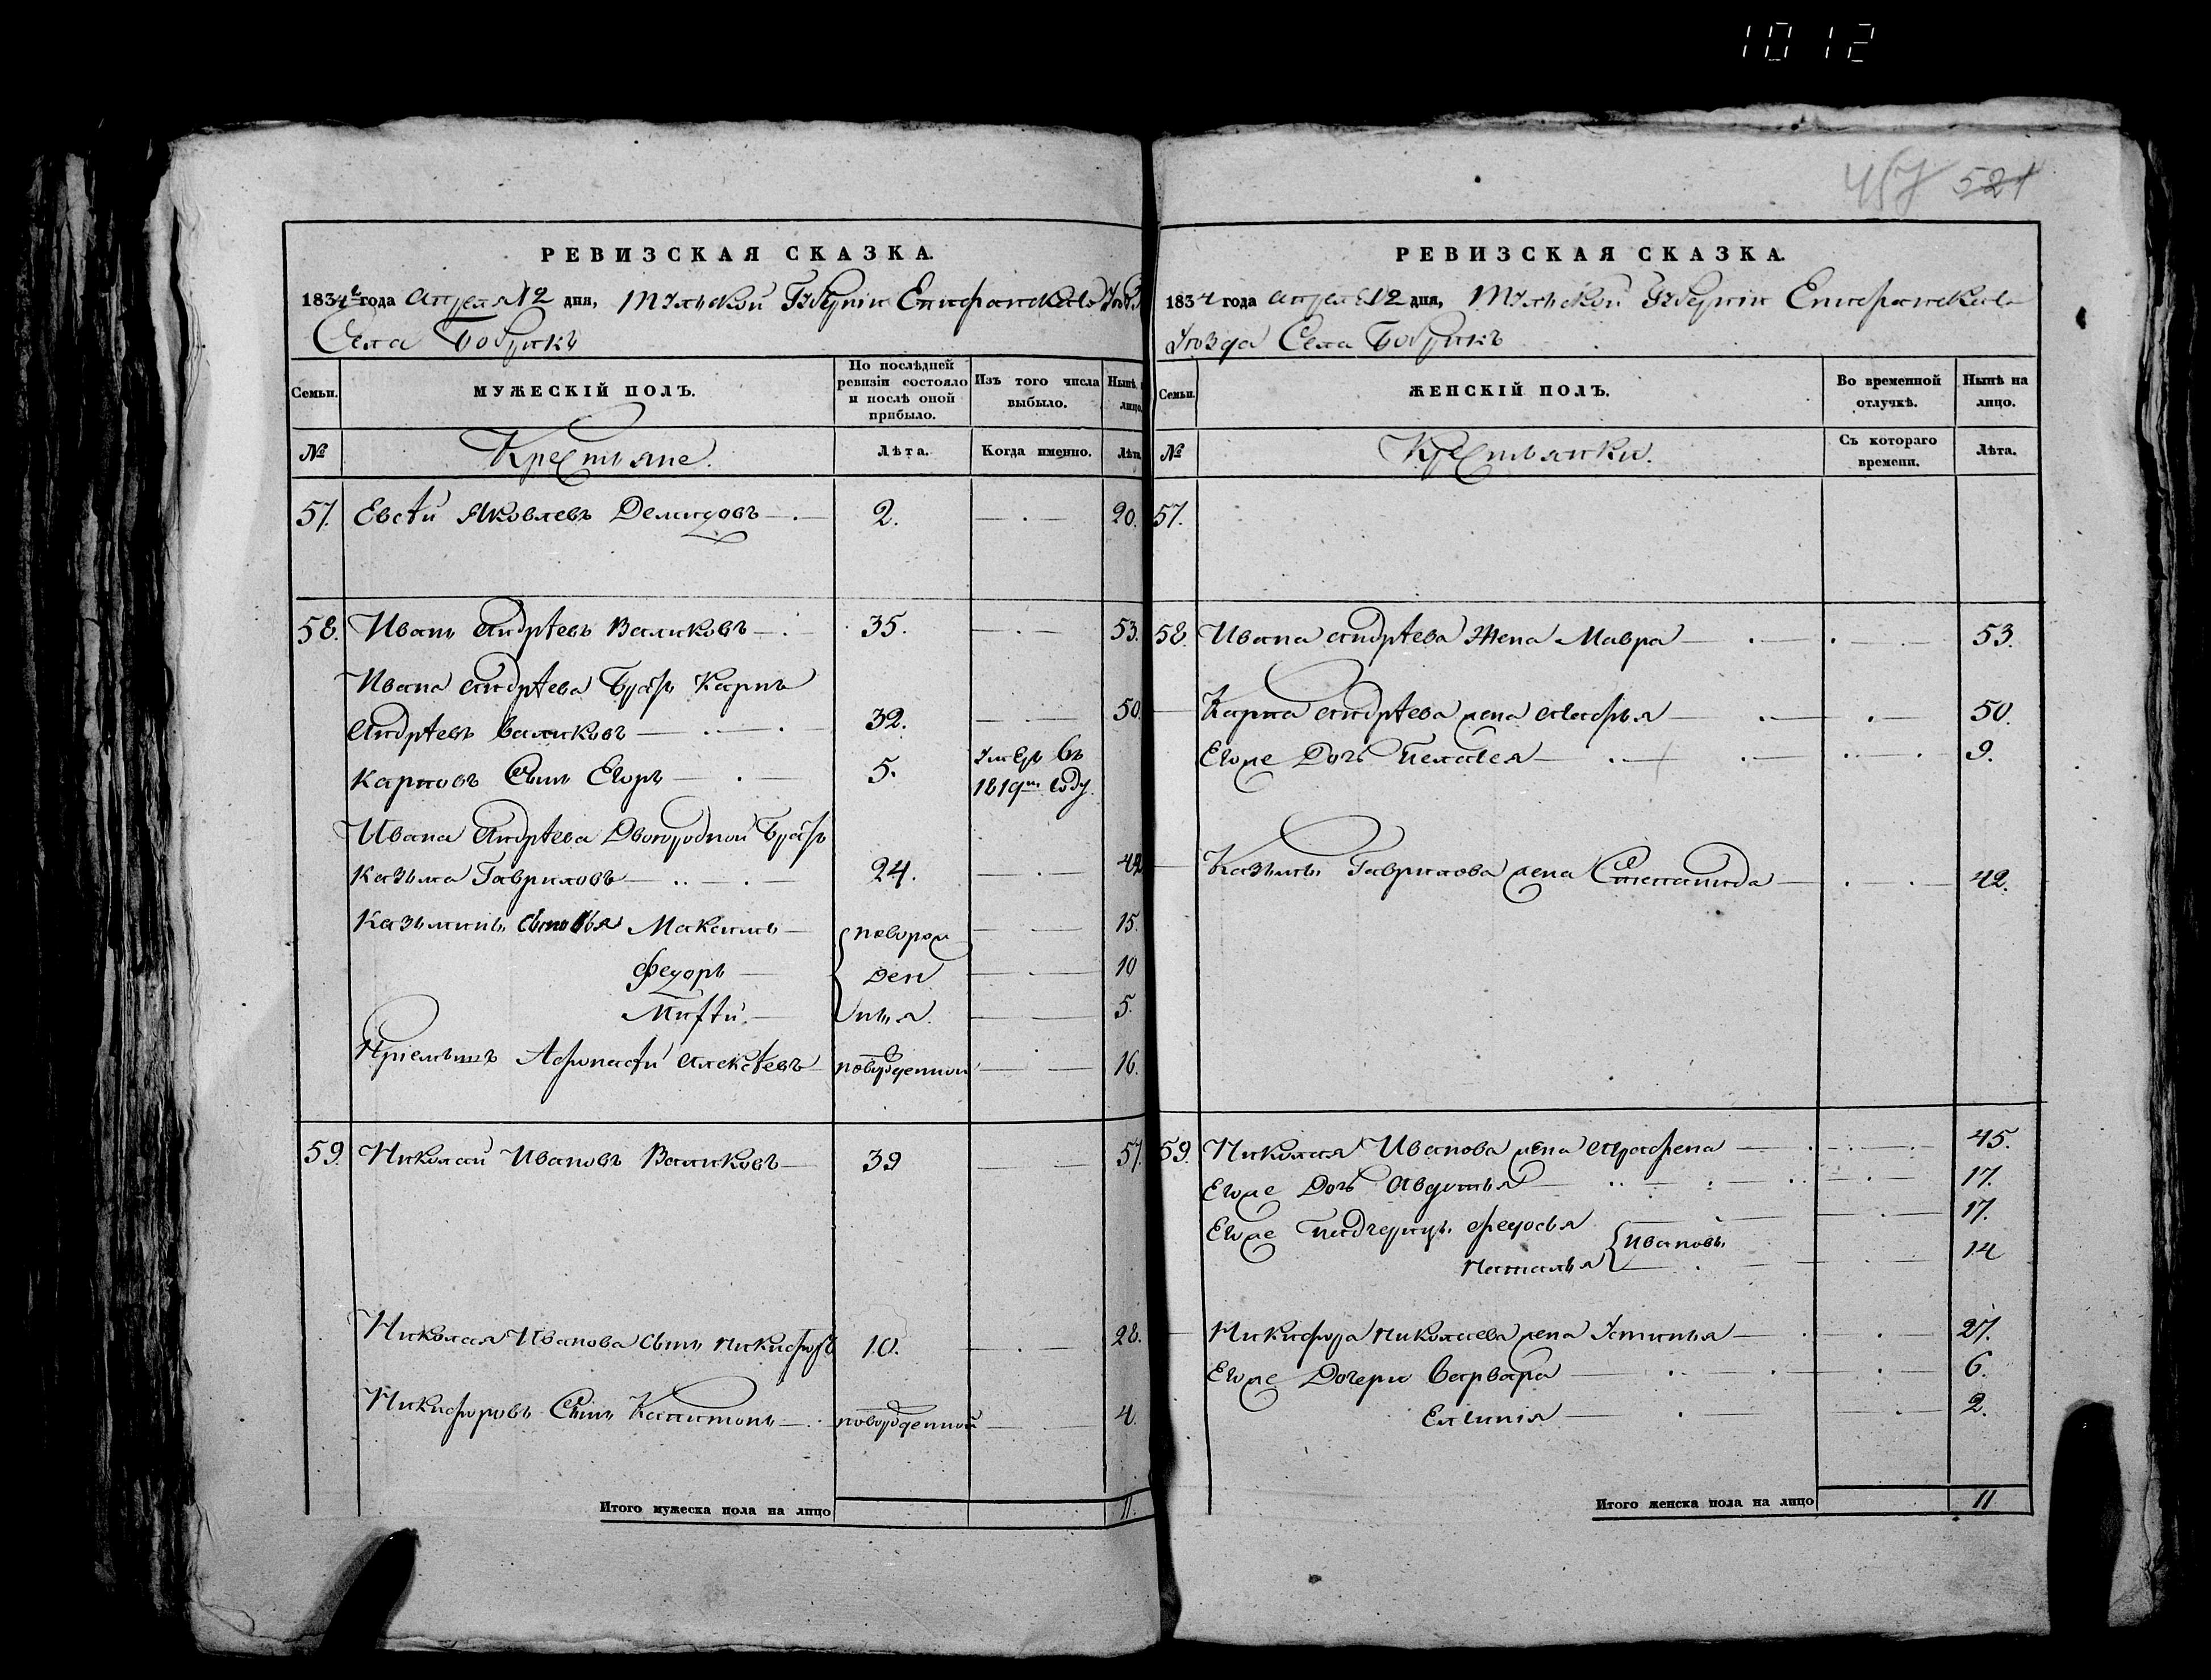 1012
457 521
РЕВИЗСКАЯ СКАЗКА.
1834 года Апреля 12 дня, Тульской Губернiи Епифанскаго Уѣзда
Села Бобрикъ
Семьи.
МУЖЕСКIЙ ПОЛЪ.
По послѣдней ревизiи состояло и послѣ оной прибыло.
Изъ того числа выбыло.
Нынѣ на лицо.
№
Крестьяне.
Лѣта.
Когда именно.
Лѣта
57. Евсѣй Яковлевъ Демидовъ 2. 20.
58. Иванъ Андрѣевъ Валиковъ 35. 53.
Ивана Андрѣева Братъ Карпъ
Андрѣевъ Валиковъ 32. 50.
Карповъ Сынъ Егоръ 5. Умеръ въ
1819м году.
Ивана Андрѣева Двоюродной Братъ
Казьма Гавриловъ 24. 42
Казьмины сыновья Максимъ новорож 15.
Федоръ ден 10
Матѣй ныя 5.
Прiемышъ Афонасѣй Алексѣевъ новорожденной 16.
59. Николай Ивановъ Валиковъ 39 57.
Николая Иванова сынъ Никифоръ 10. 28.
Никифоровъ Сынъ Капитонъ новорожденной 4.
Итого мужеска пола на лицо 11.
РЕВИЗСКАЯ СКАЗКА.
1834 года Апреля 12 дня, Тульской Губернiи Епифанскаго
Уѣзда Села Бобрикъ
Семьи.
ЖЕНСКIЙ ПОЛЪ.
Во временной отлучкѣ.
Нынѣ на лицо.
№
Крестьянки.
Съ котораго времени.
Лѣта.
57.
58. Ивана Андрѣева Жена Мавра 53.
Карпа Андрѣева жена Марфья 50.
Егоже Дочь Пелагея 9.
Казьмы Гаврилова жена Степанида 42.
59. Николая Иванова жена Аграфена 45.
Егоже Дочь Авдотья 17.
Егоже Падчерицы Федосья 17.
Ивановы
Наталья 14
Никифора Николаева жена Устинья 27.
Егоже Дочери Варвара 6.
Евгинiя 2.
Итого женска пола на лицо 11